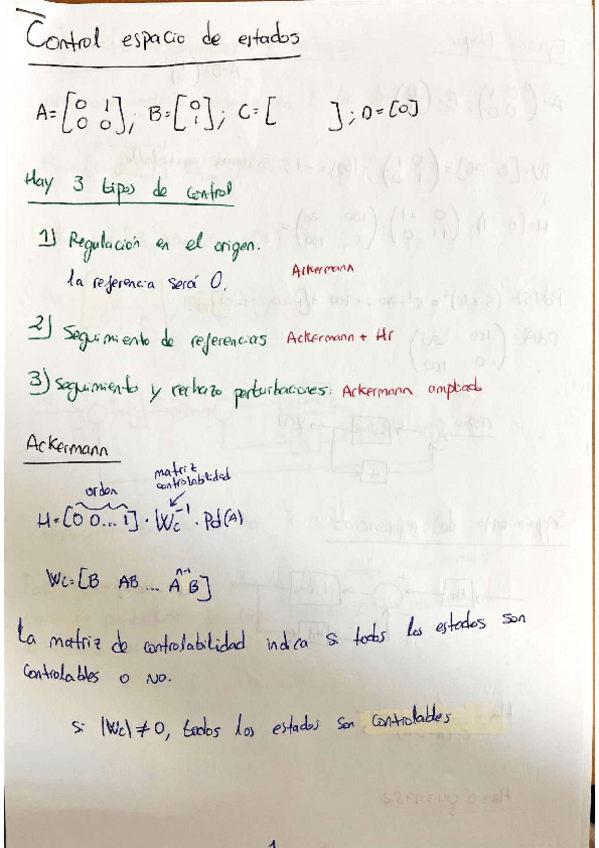 Control espacio de estados
A=[0 1 0 0]; B=[0 1]; C=[ ]; D=[0]
Hay 3 tipos de control
1) Regulación en el origen.
la referencia será 0.
Ackermann
2) Seguimiento de referencias Ackermann + Hr
3) Seguimiento y rechazo perturbaciones: Ackermann ampliado
Ackermann
orden
matriz
controlabilidad
H=[0 0... 1] · Wc⁻¹ · Pd(A)
Wc=[B AB ... Aⁿ⁻¹B]
La matriz de controlabilidad indica si todos los estados son
controlables o no.
Si |Wc| ≠ 0, todos los estados son controlables
1